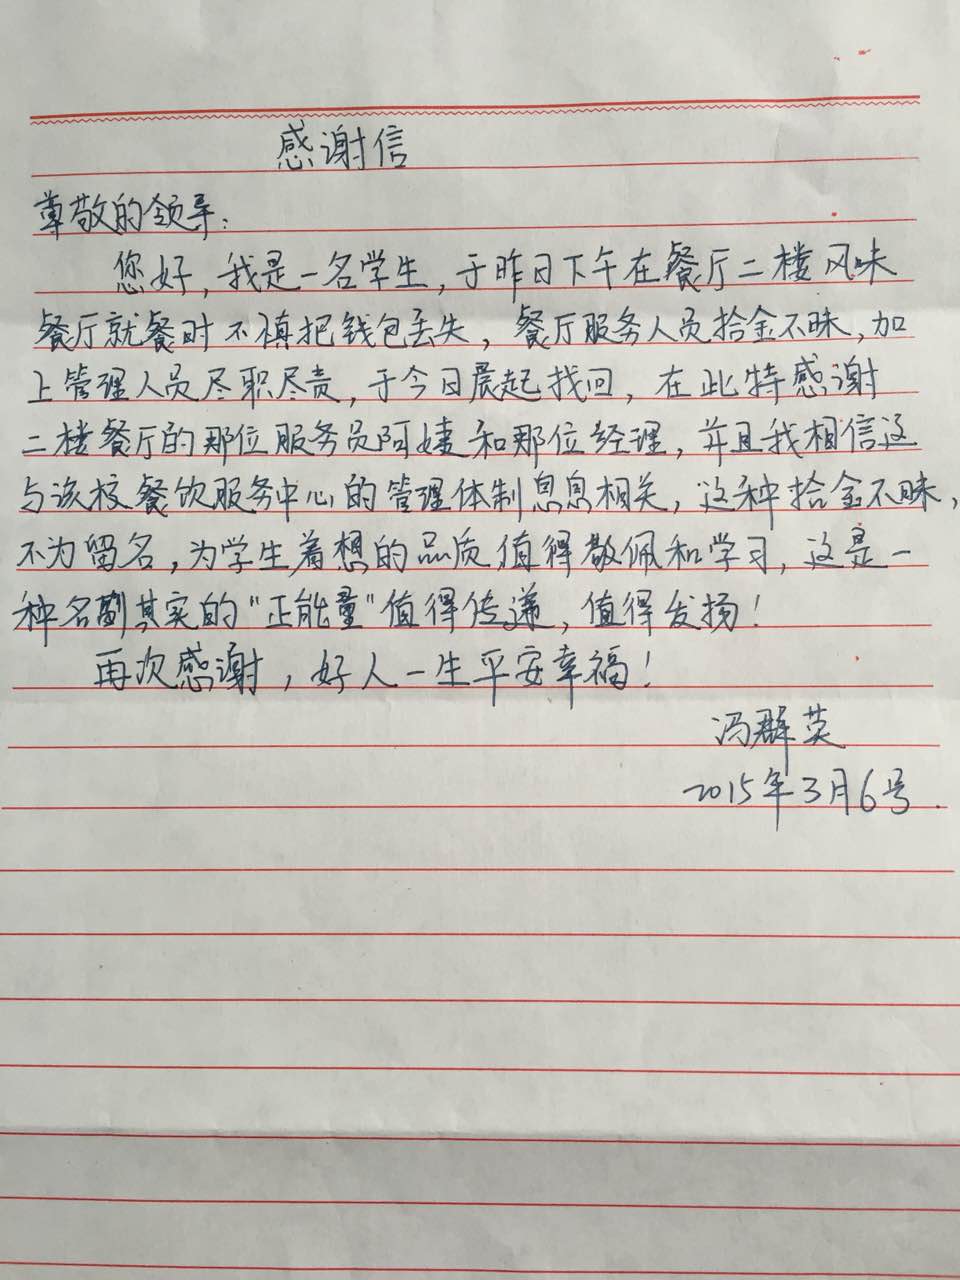 感谢信
尊敬的领导:
您好,我是一名学生,于昨日下午在餐厅二楼风味
餐厅就餐时不慎把钱包丢失,餐厅服务人员拾金不昧,加
上管理人员尽职尽责,于今日晨起找回,在此特感谢
二楼餐厅的那位服务员阿姨和那位经理,并且我相信这
与该校餐饮服务中心的管理体制息息相关,这种拾金不昧,
不为留名,为学生着想的品质值得敬佩和学习,这是一
种名副其实的"正能量"值得传递,值得发扬!
再次感谢,好人一生平安幸福!
冯群英
2015年3月6号.